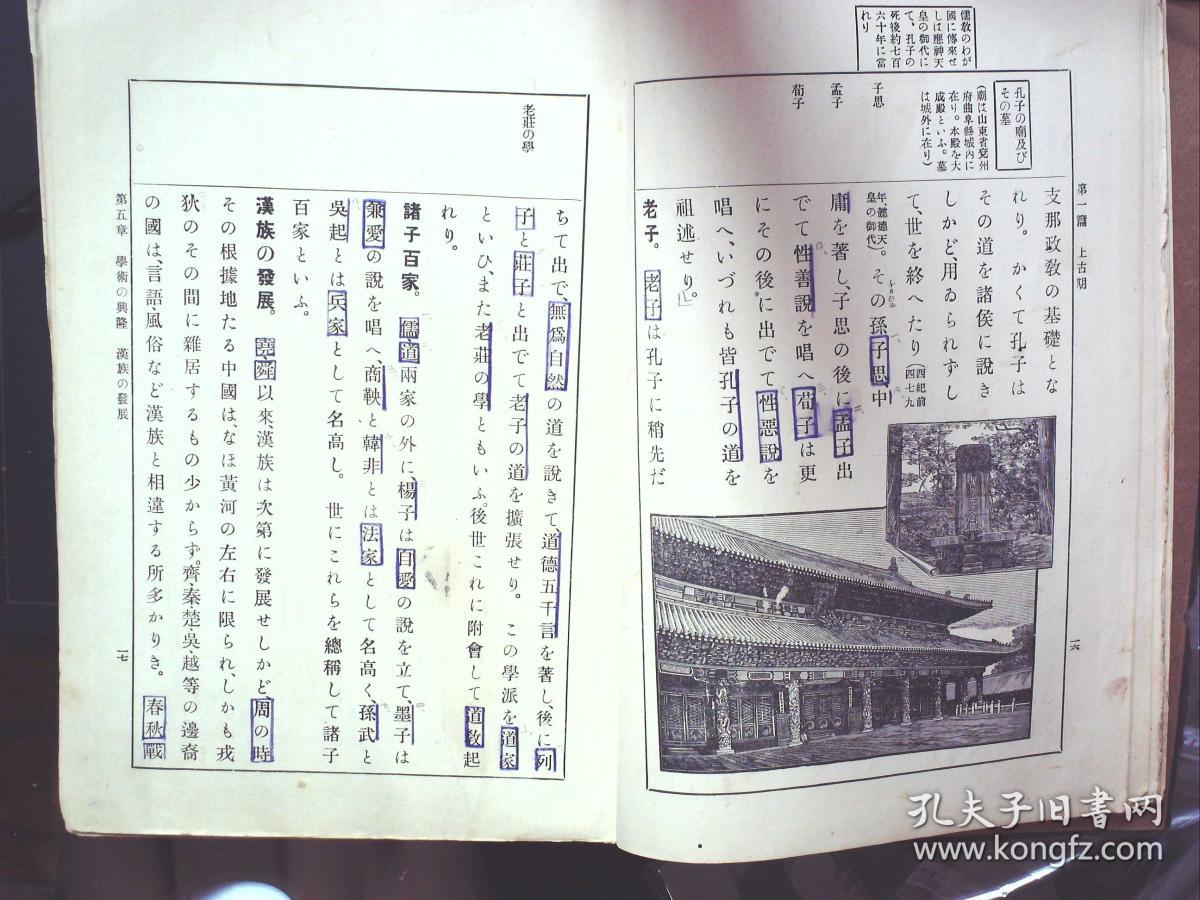 儒敎のわが
國に傳來せ
しは應神天
皇の御代に
て、孔子の
死後約七百
六十年に當
れり
孔子の廟及び
その墓
(廟は山東省兗州
府曲阜縣城內に
在り。本殿を大
成殿といふ。墓
は城外に在り)
子思
孟子
荀子
第一篇 上古期
支那政敎の基礎とな
れり。かくて孔子は
その道を諸侯に說き
しかど、用ゐられずし
て、世を終へたり(西紀前四七九
年、懿德天皇の御代)。その孫子思、中
庸を著し、子思の後に孟子出
でて性善說を唱へ、荀子は更
にその後に出でて性惡說を
唱へ、いづれも皆孔子の道を
祖述せり。
老子。老子は孔子に稍先だ
一六
老莊の學
ちて出で、無爲自然の道を說きて、道德五千言を著し、後に列
子と莊子と出でて老子の道を擴張せり。この學派を道家
といひ、また老莊の學ともいふ。後世これに附會して道敎起
れり。
諸子百家。儒・道兩家の外に、楊子は自愛の說を立て、墨子は
兼愛の說を唱へ、商鞅と韓非とは法家として名高く、孫武と
吳起とは兵家として名高し。世にこれらを總稱して諸子
百家といふ。
漢族の發展。堯・舜以來、漢族は次第に發展せしかど、周の時
その根據地たる中國は、なほ黃河の左右に限られ、しかも戎
狄のその間に雜居するもの少からず。齊・秦・楚・吳・越等の邊裔
の國は、言語・風俗など漢族と相違する所多かりき。春秋戰
第五章 學術の興隆 漢族の發展
一七
孔夫子旧书网
www.kongfz.com